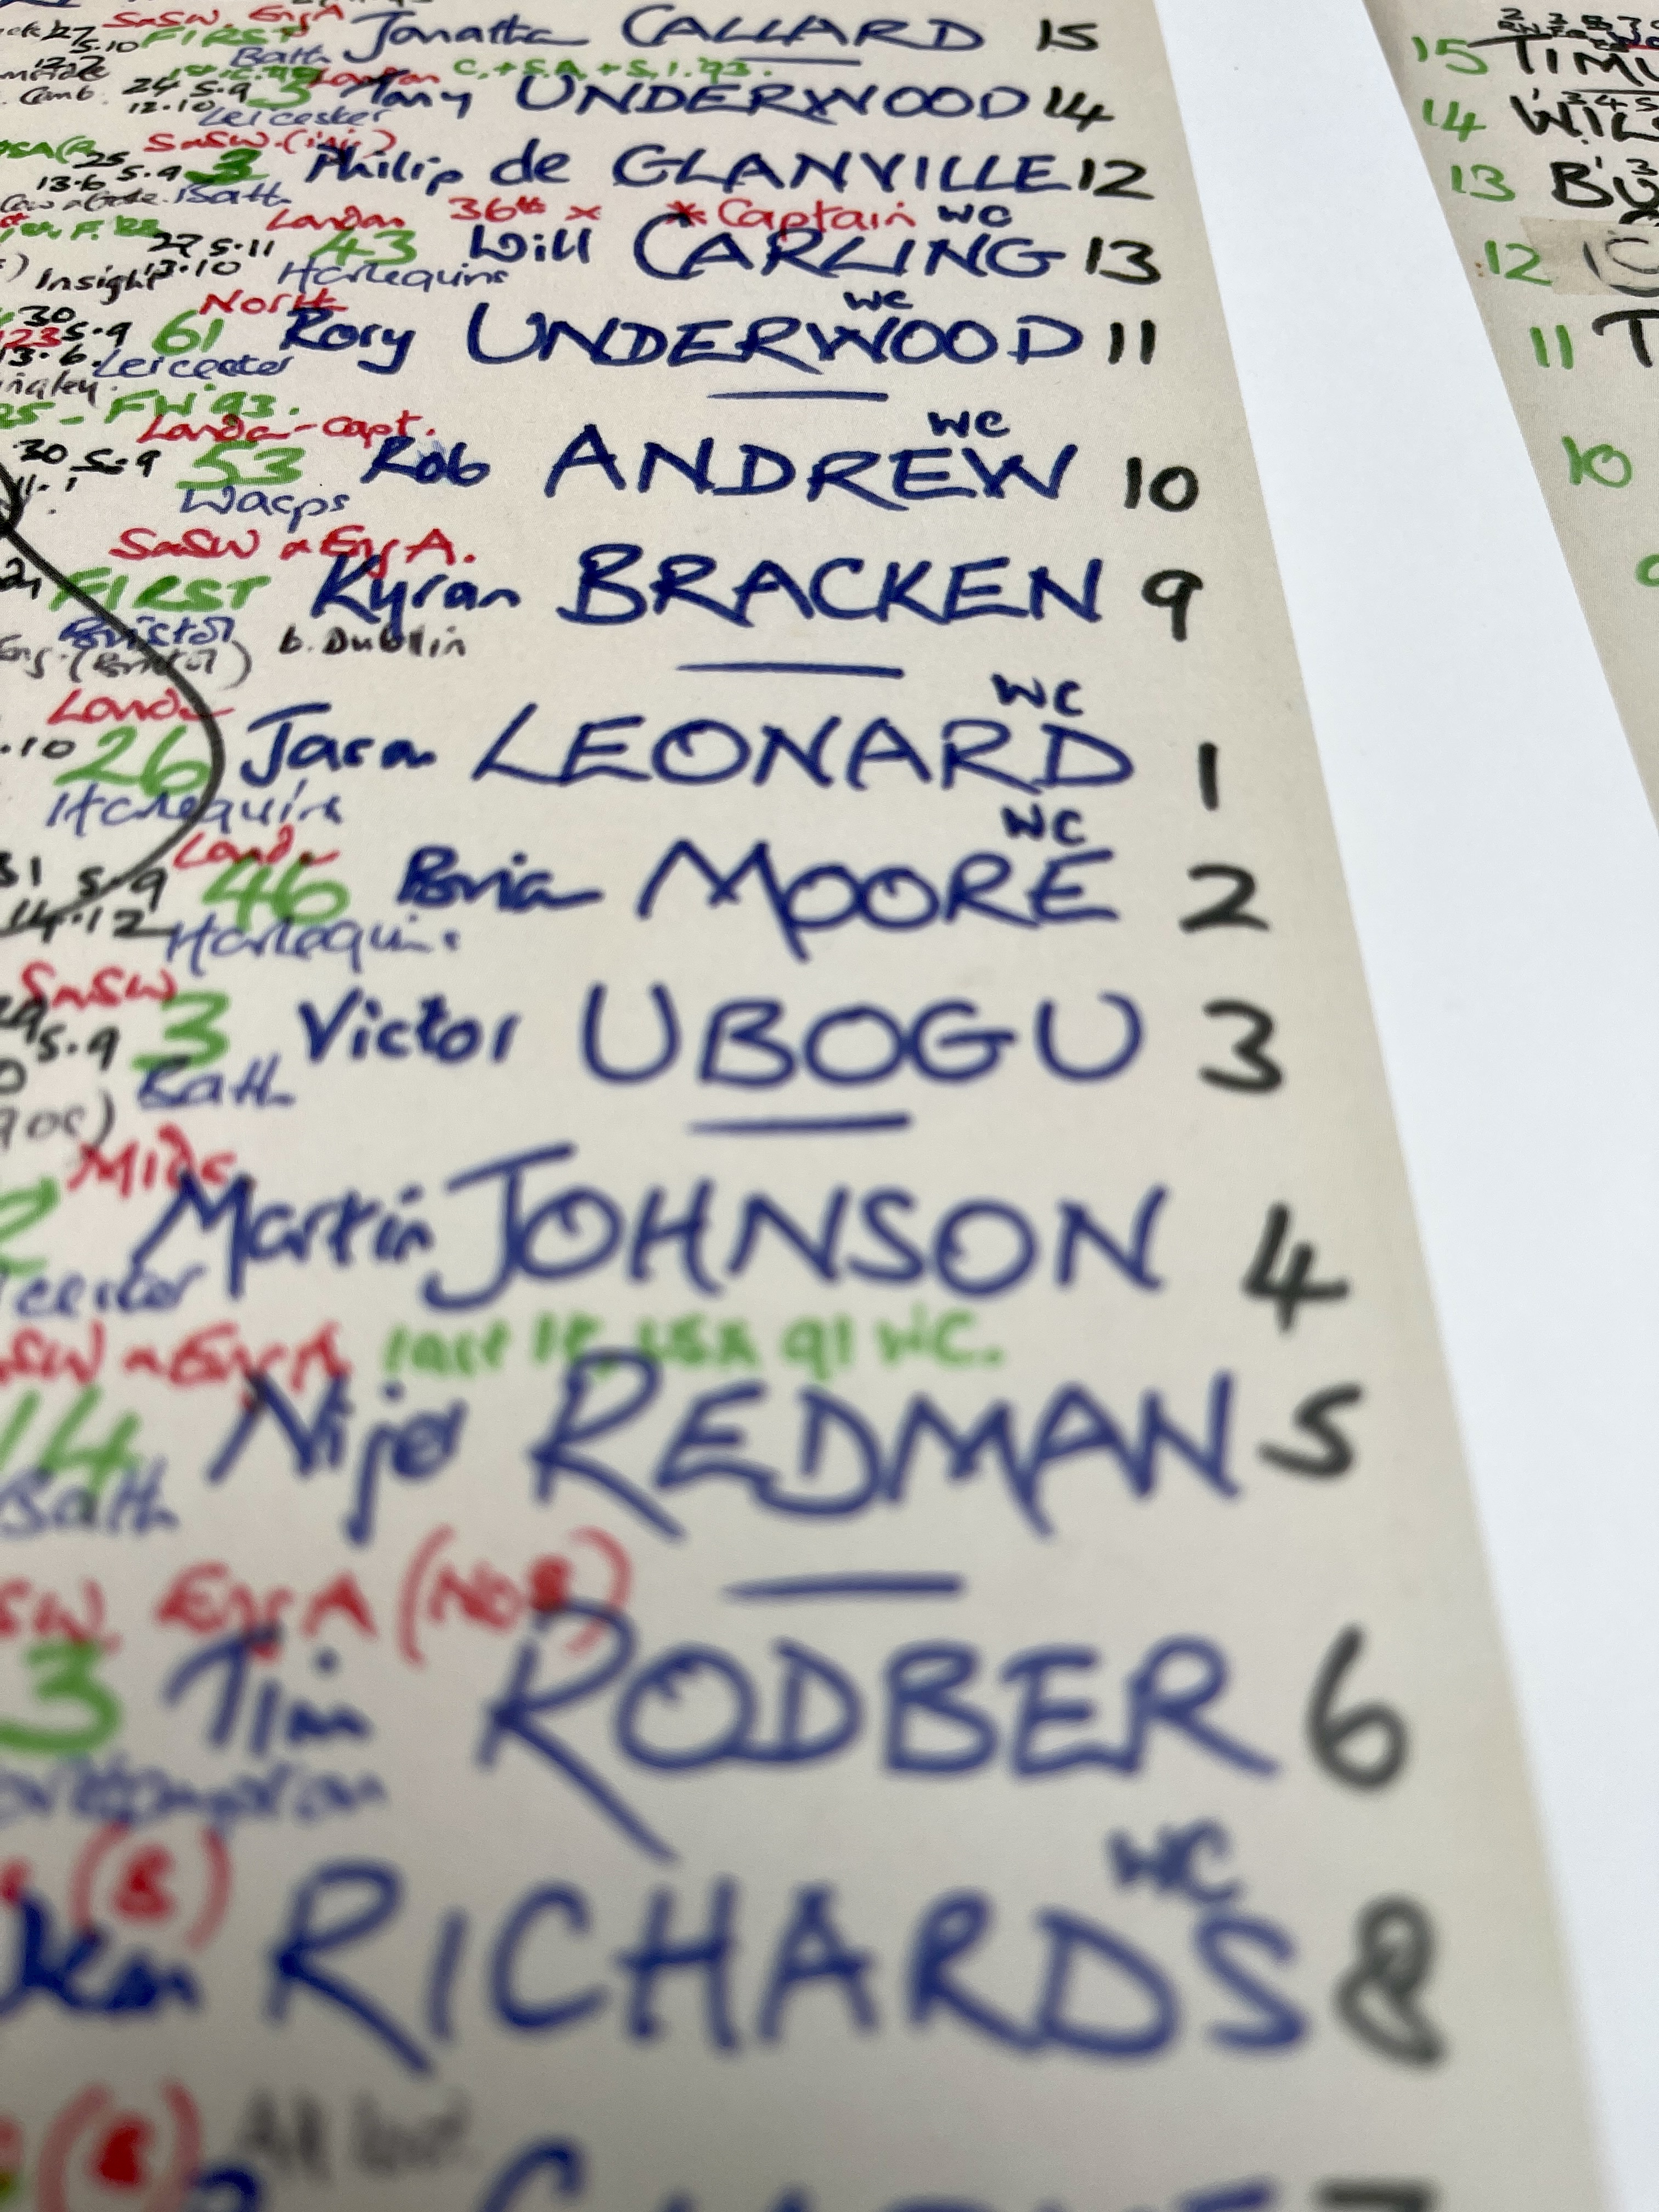 SaSW. EngA
FIRST Jonathan CALLARD 15
5.10 Bath
London C.+S.A.+S.I.'93.
Comb. 24 5.9 3 Tony UNDERWOOD 14
12.10 Leicester
SaSW.
25 5.9 3 Philip de GLANVILLE 12
13.6 Bath
London 36th x * Captain WC
27 5.11 43 Will CARLING 13
Insight 13.10 Harlequins
North WC
30 5.9 61 Rory UNDERWOOD 11
13.6. Leicester
25 - FW '93.
London-capt. WC
30 5.9 53 Rob ANDREW 10
Wasps
SaSW & Eng A.
FIRST Kyran BRACKEN 9
Bristol
Eng. (Bristol) b. Dublin
London WC
.10 26 Jason LEONARD 1
Harlequins
London WC
31 5.9 46 Brian MOORE 2
14.12 Harlequins
SaSW
29 5.9 3 Victor UBOGU 3
Bath
Mids.
2 Martin JOHNSON 4
SW & Eng A last 1t, USA 91 WC.
14 Nigel REDMAN 5
Bath
SW. Eng A (No 8)
3 Tim RODBER 6
Northampton
(8) WC
Dean RICHARDS 8
(8)
15
14
13 BU
12
11 T
10